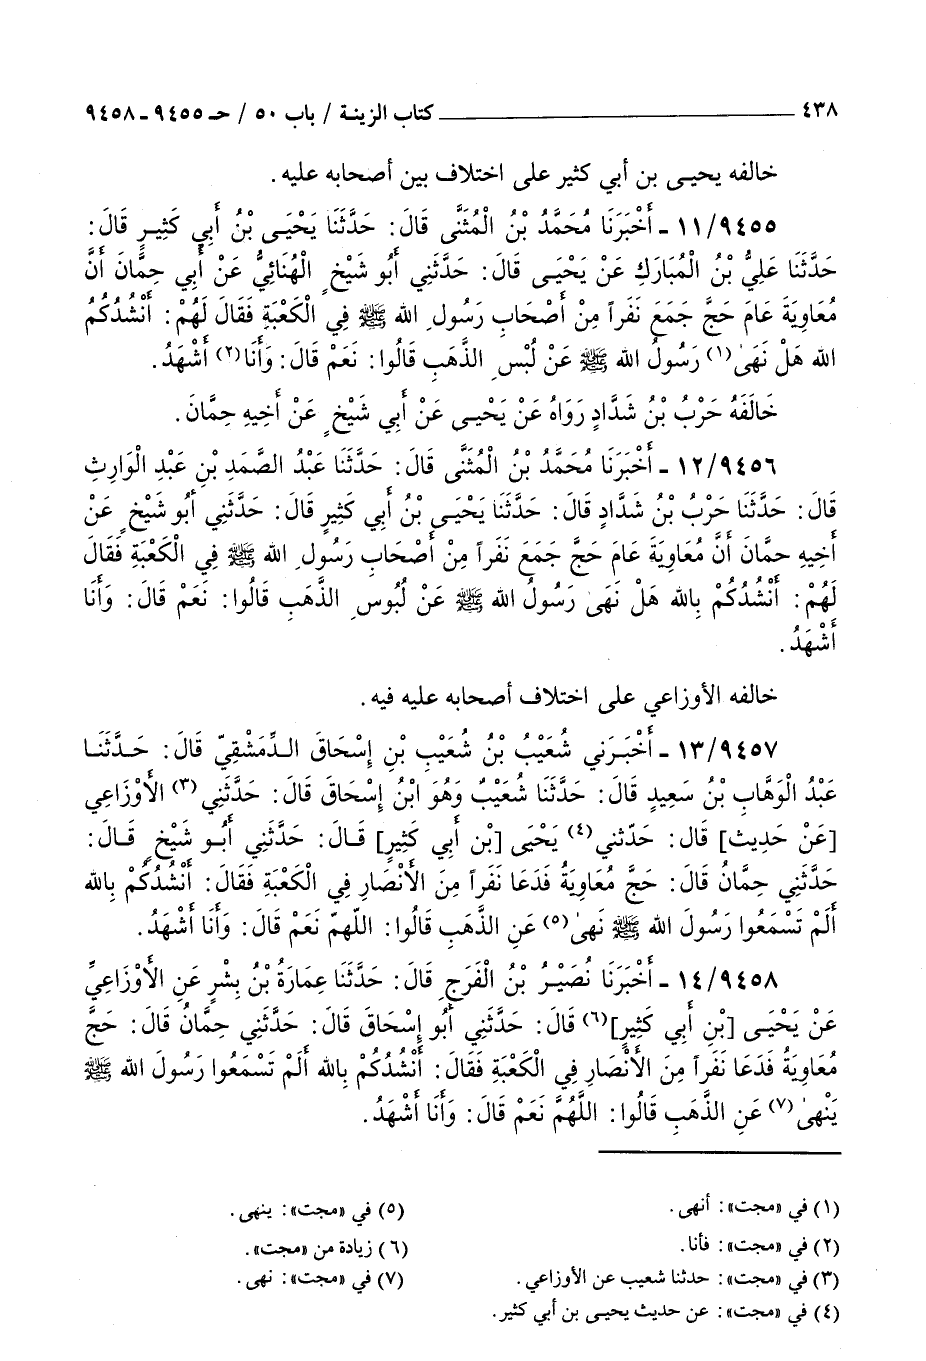 ٤٣٨ كتاب الزينة / باب ٥٠ / حـ ٩٤٥٥ ـ ٩٤٥٨
خالفه يحيـى بن أبي كثير على اختلاف بين أصحابه عليه.
١١/٩٤٥٥ ـ أَخْبَرَنَا مُحَمَّدُ بْنُ الْمُثَنَّى قَالَ: حَدَّثَنَا يَحْيَـى بْنُ أَبِي كَثِيرٍ قَالَ:
حَدَّثَنَا عَلِيُّ بْنُ الْمُبَارَكِ عَنْ يَحْيَـى قَالَ: حَدَّثَنِي أَبُو شَيْخٍ الْهُنَائِيُّ عَنْ أَبِي حِمَّانَ أَنَّ
مُعَاوِيَةَ عَامَ حَجَّ جَمَعَ نَفَراً مِنْ أَصْحَابِ رَسُولِ الله ﷺ فِي الْكَعْبَةِ فَقَالَ لَهُمْ: أَنْشُدُكُمُ
الله هَلْ نَهَىٰ(١) رَسُولُ الله ﷺ عَنْ لُبْسِ الذَّهَبِ قَالُوا: نَعَمْ قَالَ: وَأَنَا(٢) أَشْهَدُ.
خَالَفَهُ حَرْبُ بْنُ شَدَّادٍ رَوَاهُ عَنْ يَحْيَـى عَنْ أَبِي شَيْخٍ عَنْ أَخِيهِ حِمَّانَ.
١٢/٩٤٥٦ ـ أَخْبَرَنَا مُحَمَّدُ بْنُ الْمُثَنَّى قَالَ: حَدَّثَنَا عَبْدُ الصَّمَدِ بْنِ عَبْدِ الْوَارِثِ
قَالَ: حَدَّثَنَا حَرْبُ بْنُ شَدَّادٍ قَالَ: حَدَّثَنَا يَحْيَـى بْنُ أَبِي كَثِيرٍ قَالَ: حَدَّثَنِي أَبُو شَيْخٍ عَنْ
أَخِيهِ حِمَّانَ أَنَّ مُعَاوِيَةَ عَامَ حَجَّ جَمَعَ نَفَراً مِنْ أَصْحَابِ رَسُولِ الله ﷺ فِي الْكَعْبَةِ فَقَالَ
لَهُمْ: أَنْشُدُكُمْ بِالله هَلْ نَهَىٰ رَسُولُ الله ﷺ عَنْ لُبُوسِ الذَّهَبِ قَالُوا: نَعَمْ قَالَ: وَأَنَا
أَشْهَدُ.
خالفه الأوزاعي على اختلاف أصحابه عليه فيه.
١٣/٩٤٥٧ ـ أَخْبَرَنِي شُعَيْبُ بْنُ شُعَيْبِ بْنِ إِسْحَاقَ الدِّمَشْقِيّ قَالَ: حَدَّثَنَا
عَبْدُ الْوَهَّابِ بْنُ سَعِيدٍ قَالَ: حَدَّثَنَا شُعَيْبٌ وَهُوَ ابْنُ إِسْحَاقَ قَالَ: حَدَّثَنِي(٣) الأَوْزَاعِي
[عَنْ حَدِيث] قَال: حَدّثني(٤) يَحْيَى [بْن أَبِي كَثِير] قَالَ: حَدَّثَنِي أَبُو شَيْخٍ قَالَ:
حَدَّثَنِي حِمَّانُ قَالَ: حَجَّ مُعَاوِيَةُ فَدَعَا نَفَراً مِنَ الأَنْصَارِ فِي الْكَعْبَةِ فَقَالَ: أَنْشُدُكُمْ بِالله
أَلَمْ تَسْمَعُوا رَسُولَ الله ﷺ نَهىٰ(٥) عَنِ الذَّهَبِ قَالُوا: اللّهمّ نَعَمْ قَالَ: وَأَنَا أَشْهَدُ.
١٤/٩٤٥٨ ـ أَخْبَرَنَا نُصَيْرُ بْنُ الْفَرَجِ قَالَ: حَدَّثَنَا عِمَارَةُ بْنُ بِشْرٍ عَنِ الأَوْزَاعِيِّ
عَنْ يَحْيَـى [بْنِ أَبِي كَثِيرٍ](٦) قَالَ: حَدَّثَنِي أَبُو إِسْحَاقَ قَالَ: حَدَّثَنِي حِمَّانُ قَالَ: حَجَّ
مُعَاوِيَةُ فَدَعَا نَفَراً مِنَ الأَنْصَارِ فِي الْكَعْبَةِ فَقَالَ: أَنْشُدُكُمْ بِالله أَلَمْ تَسْمَعُوا رَسُولَ الله ﷺ
يَنْهىٰ(٧) عَنِ الذَّهَبِ قَالُوا: اللَّهُمَّ نَعَمْ قَالَ: وَأَنَا أَشْهَدُ.
(١) في «مجت»: أنهى.
(٢) في «مجت»: فأنا.
(٣) في «مجت»: حدثنا شعيب عن الأوزاعي.
(٤) في «مجت»: عن حديث يحيـى بن أبي كثير.
(٥) في «مجت»: ينهى.
(٦) زيادة من «مجت».
(٧) في «مجت»: نهى.